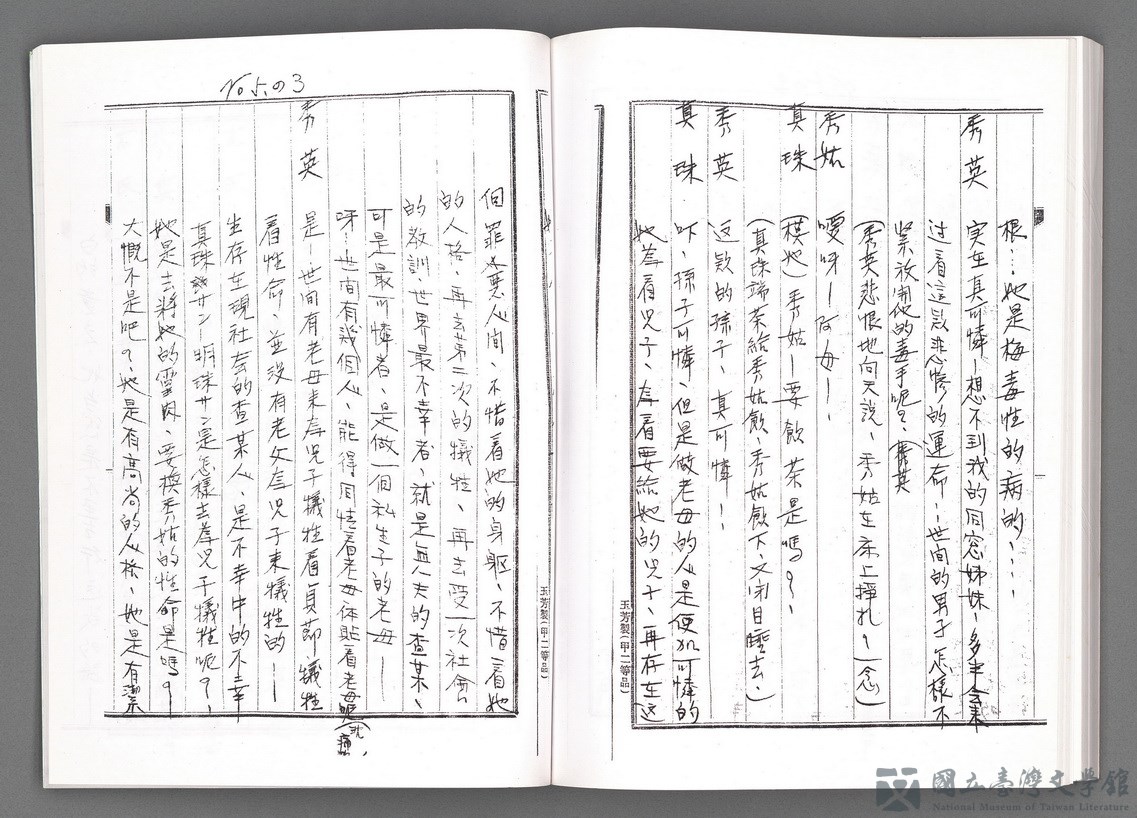 根…她是梅毒性的病的…
秀英　実在真可憐！想不到我的同窓姊妹，多半会来
过着這款悲慘的運命！世间的男子怎樣不
緊放開他的毒手呢？
（秀英悲恨地向天說、秀姑在床上掙扎）
秀姑　噯呀！阿母！
真珠（摸她）秀姑！要飲茶是嗎？
（真珠端茶給秀姑飲、秀姑飲下、又闭目睡去）
秀英　這款的孩子、真可憐！
真珠　吓、孩子可憐、但是做老母的人是更加可憐的
她為着児子、為着要給她的児子、再存在这
玉芳製（甲二等品）
No 5.の3
個罪惡人间、不惜着她的身軀、不惜着她
的人格、再去第二次的犧牲、再去受一次社會
的教訓世界最不幸者、就是無夫的查某、
可是最可憐者、是做一個私生子的老母！
呀！世间有幾個人、能得同情着老母体貼着老母呢
秀英　是！世间有老母来為児子犧牲着貞節犧牲
着性命、並沒有老父為児子来犧牲的！
生存在現社会的查某人、是不幸中的不幸
真珠サン！明珠サン是怎樣去為児子犧牲呢？
她是去將她的靈肉、要換秀姑的性命是嗎？
大慨不是吧？她是有高尚的人格、她是有潔
玉芳製（甲二等品）
國立臺灣文學館
National Museum of Taiwan Literature